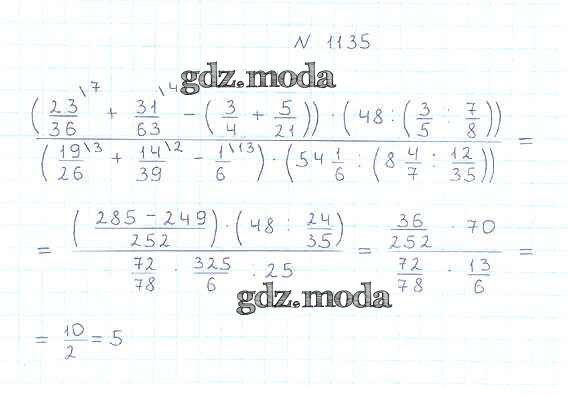 N 1135
gdz.moda
(23/36 \7 + 31/63 \4 - (3/4 + 5/21)) · (48 : (3/5 : 7/8))
(19/26 \3 + 14/39 \2 - 1/6 \13) · (54 1/6 : (8 4/7 : 12/35)) =
= ((285 - 249)/252) · (48 : 24/35) = 36/252 · 70
72/78 · 325/6 : 25 72/78 · 13/6 =
gdz.moda
= 10/2 = 5